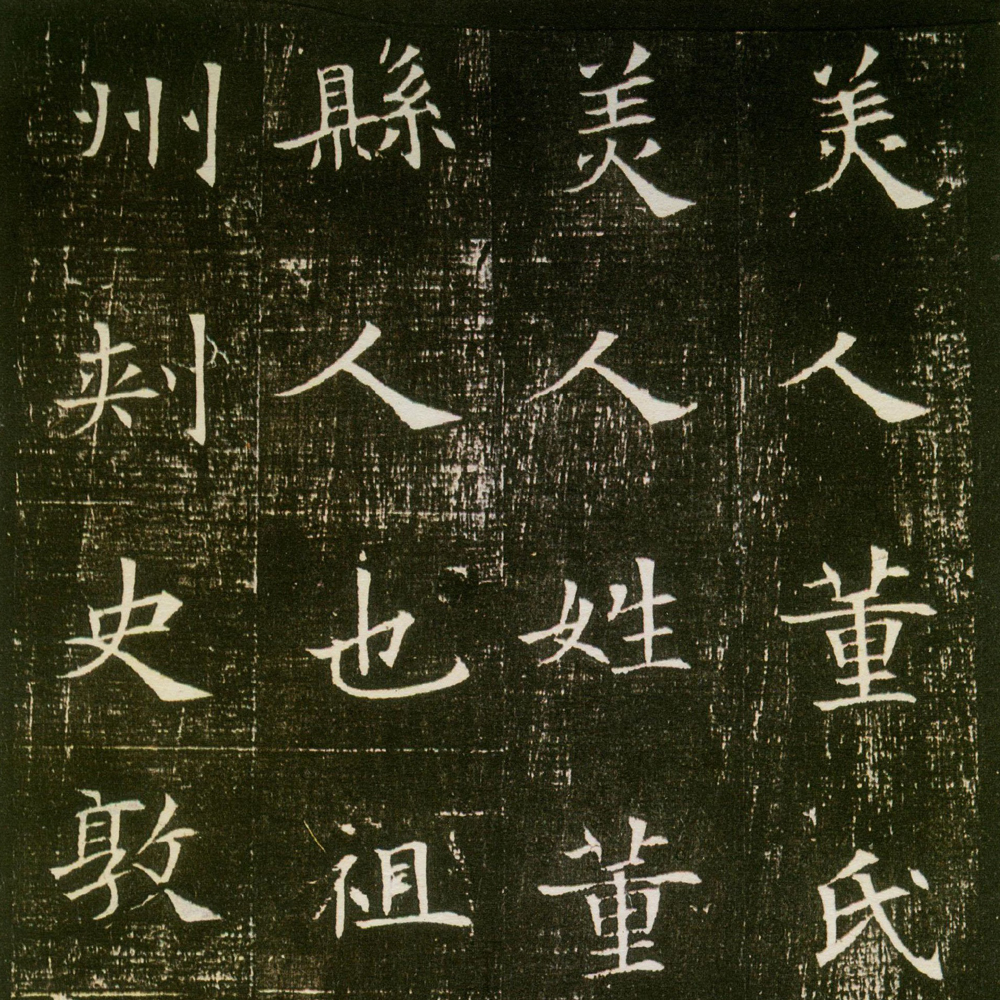 美人董氏
美人姓董
縣人也祖
州刾史敦